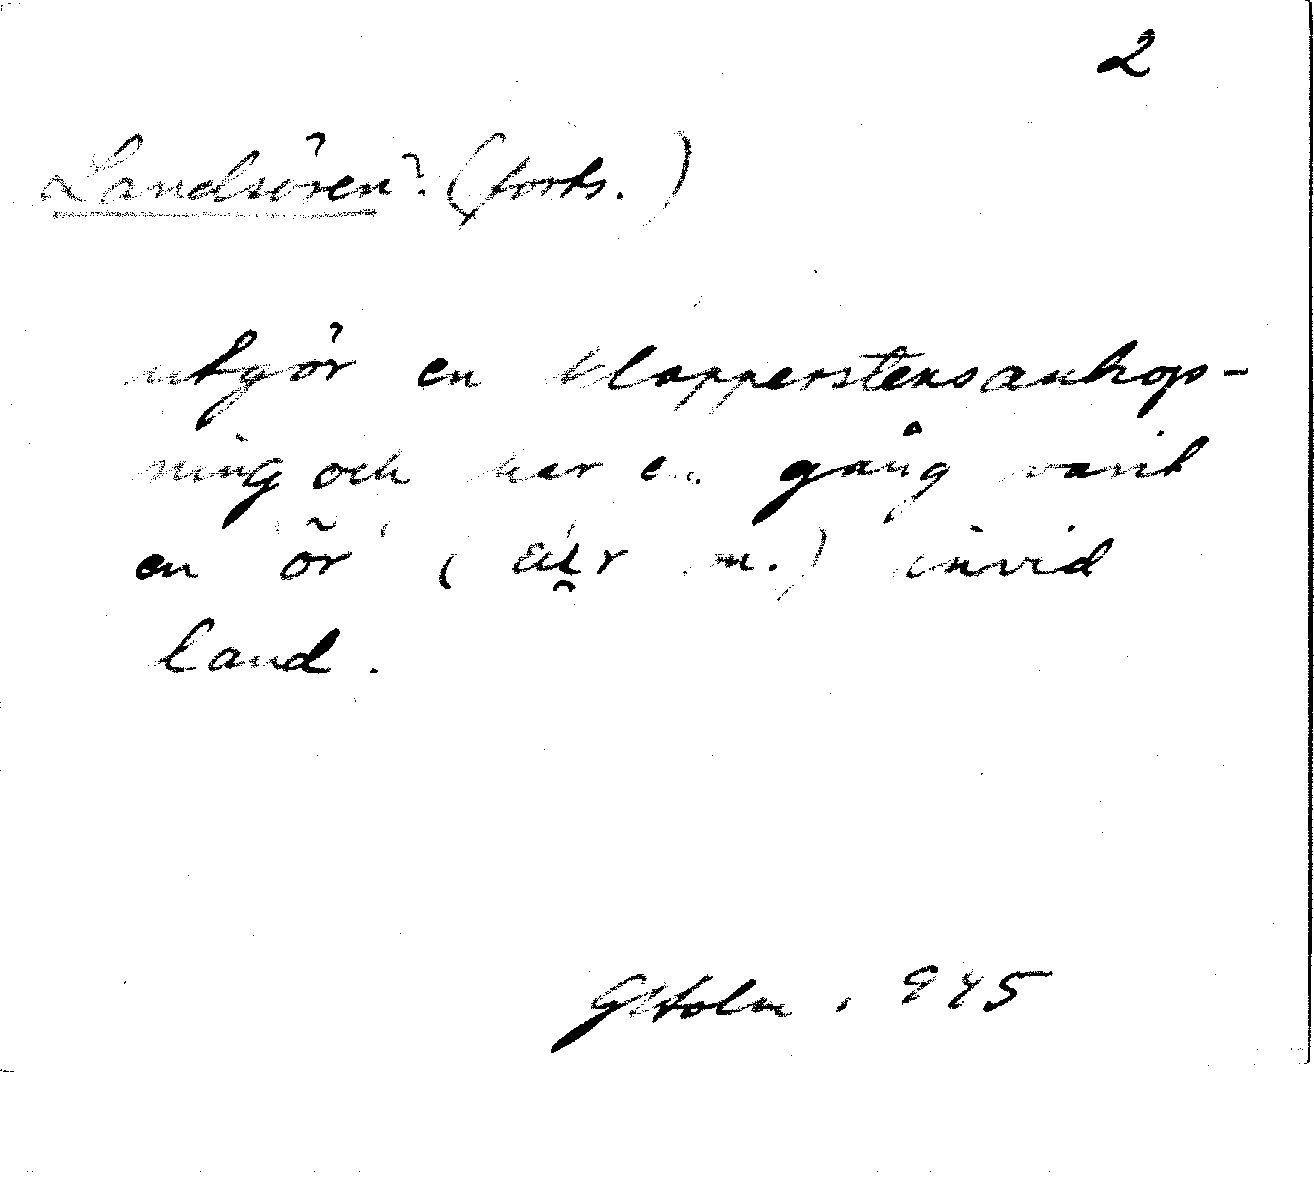 2
Landsören. (forts.)
utgör en klapperstensanhop-
ning och har en gång varit
en 'ör' ( m.) invid
land.
GHolm. 945